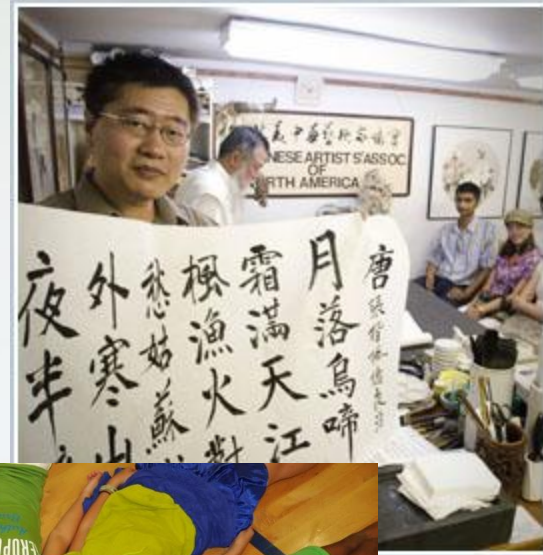 美中華藝術家協會
NESE ARTISTS'ASSOC.
OF
RTH AMERICA
唐
月落烏啼
霜滿天江
楓漁火對
愁姑蘇
外寒山
夜半